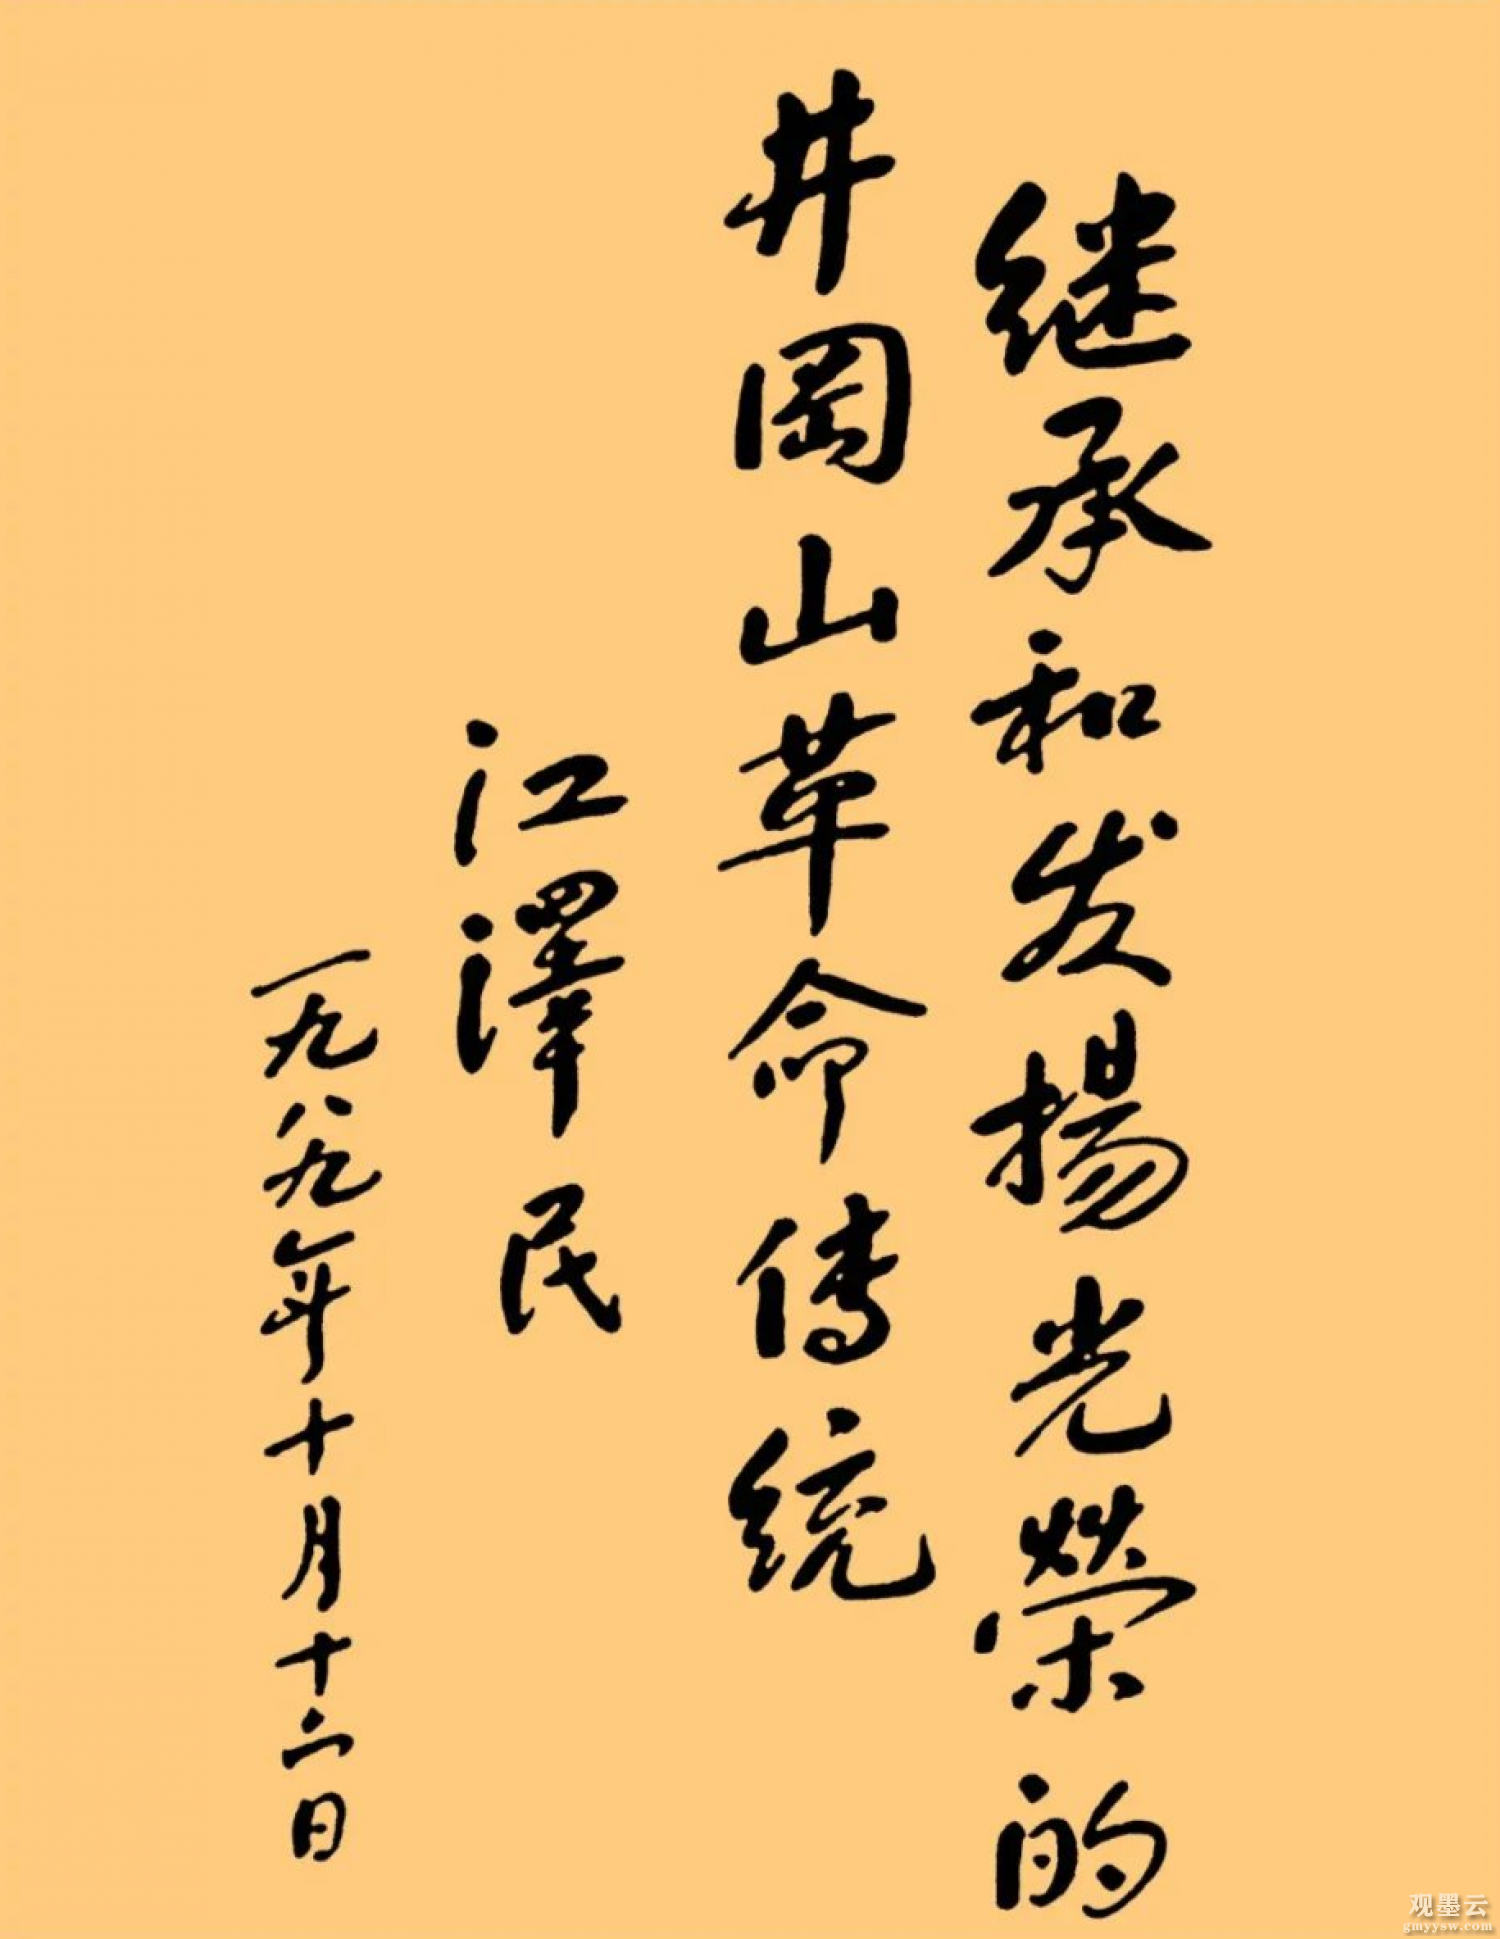 继承和发揚光榮的
井岡山革命传统
江澤民
一九八九年十月十二日
观墨云
gmyysw.com